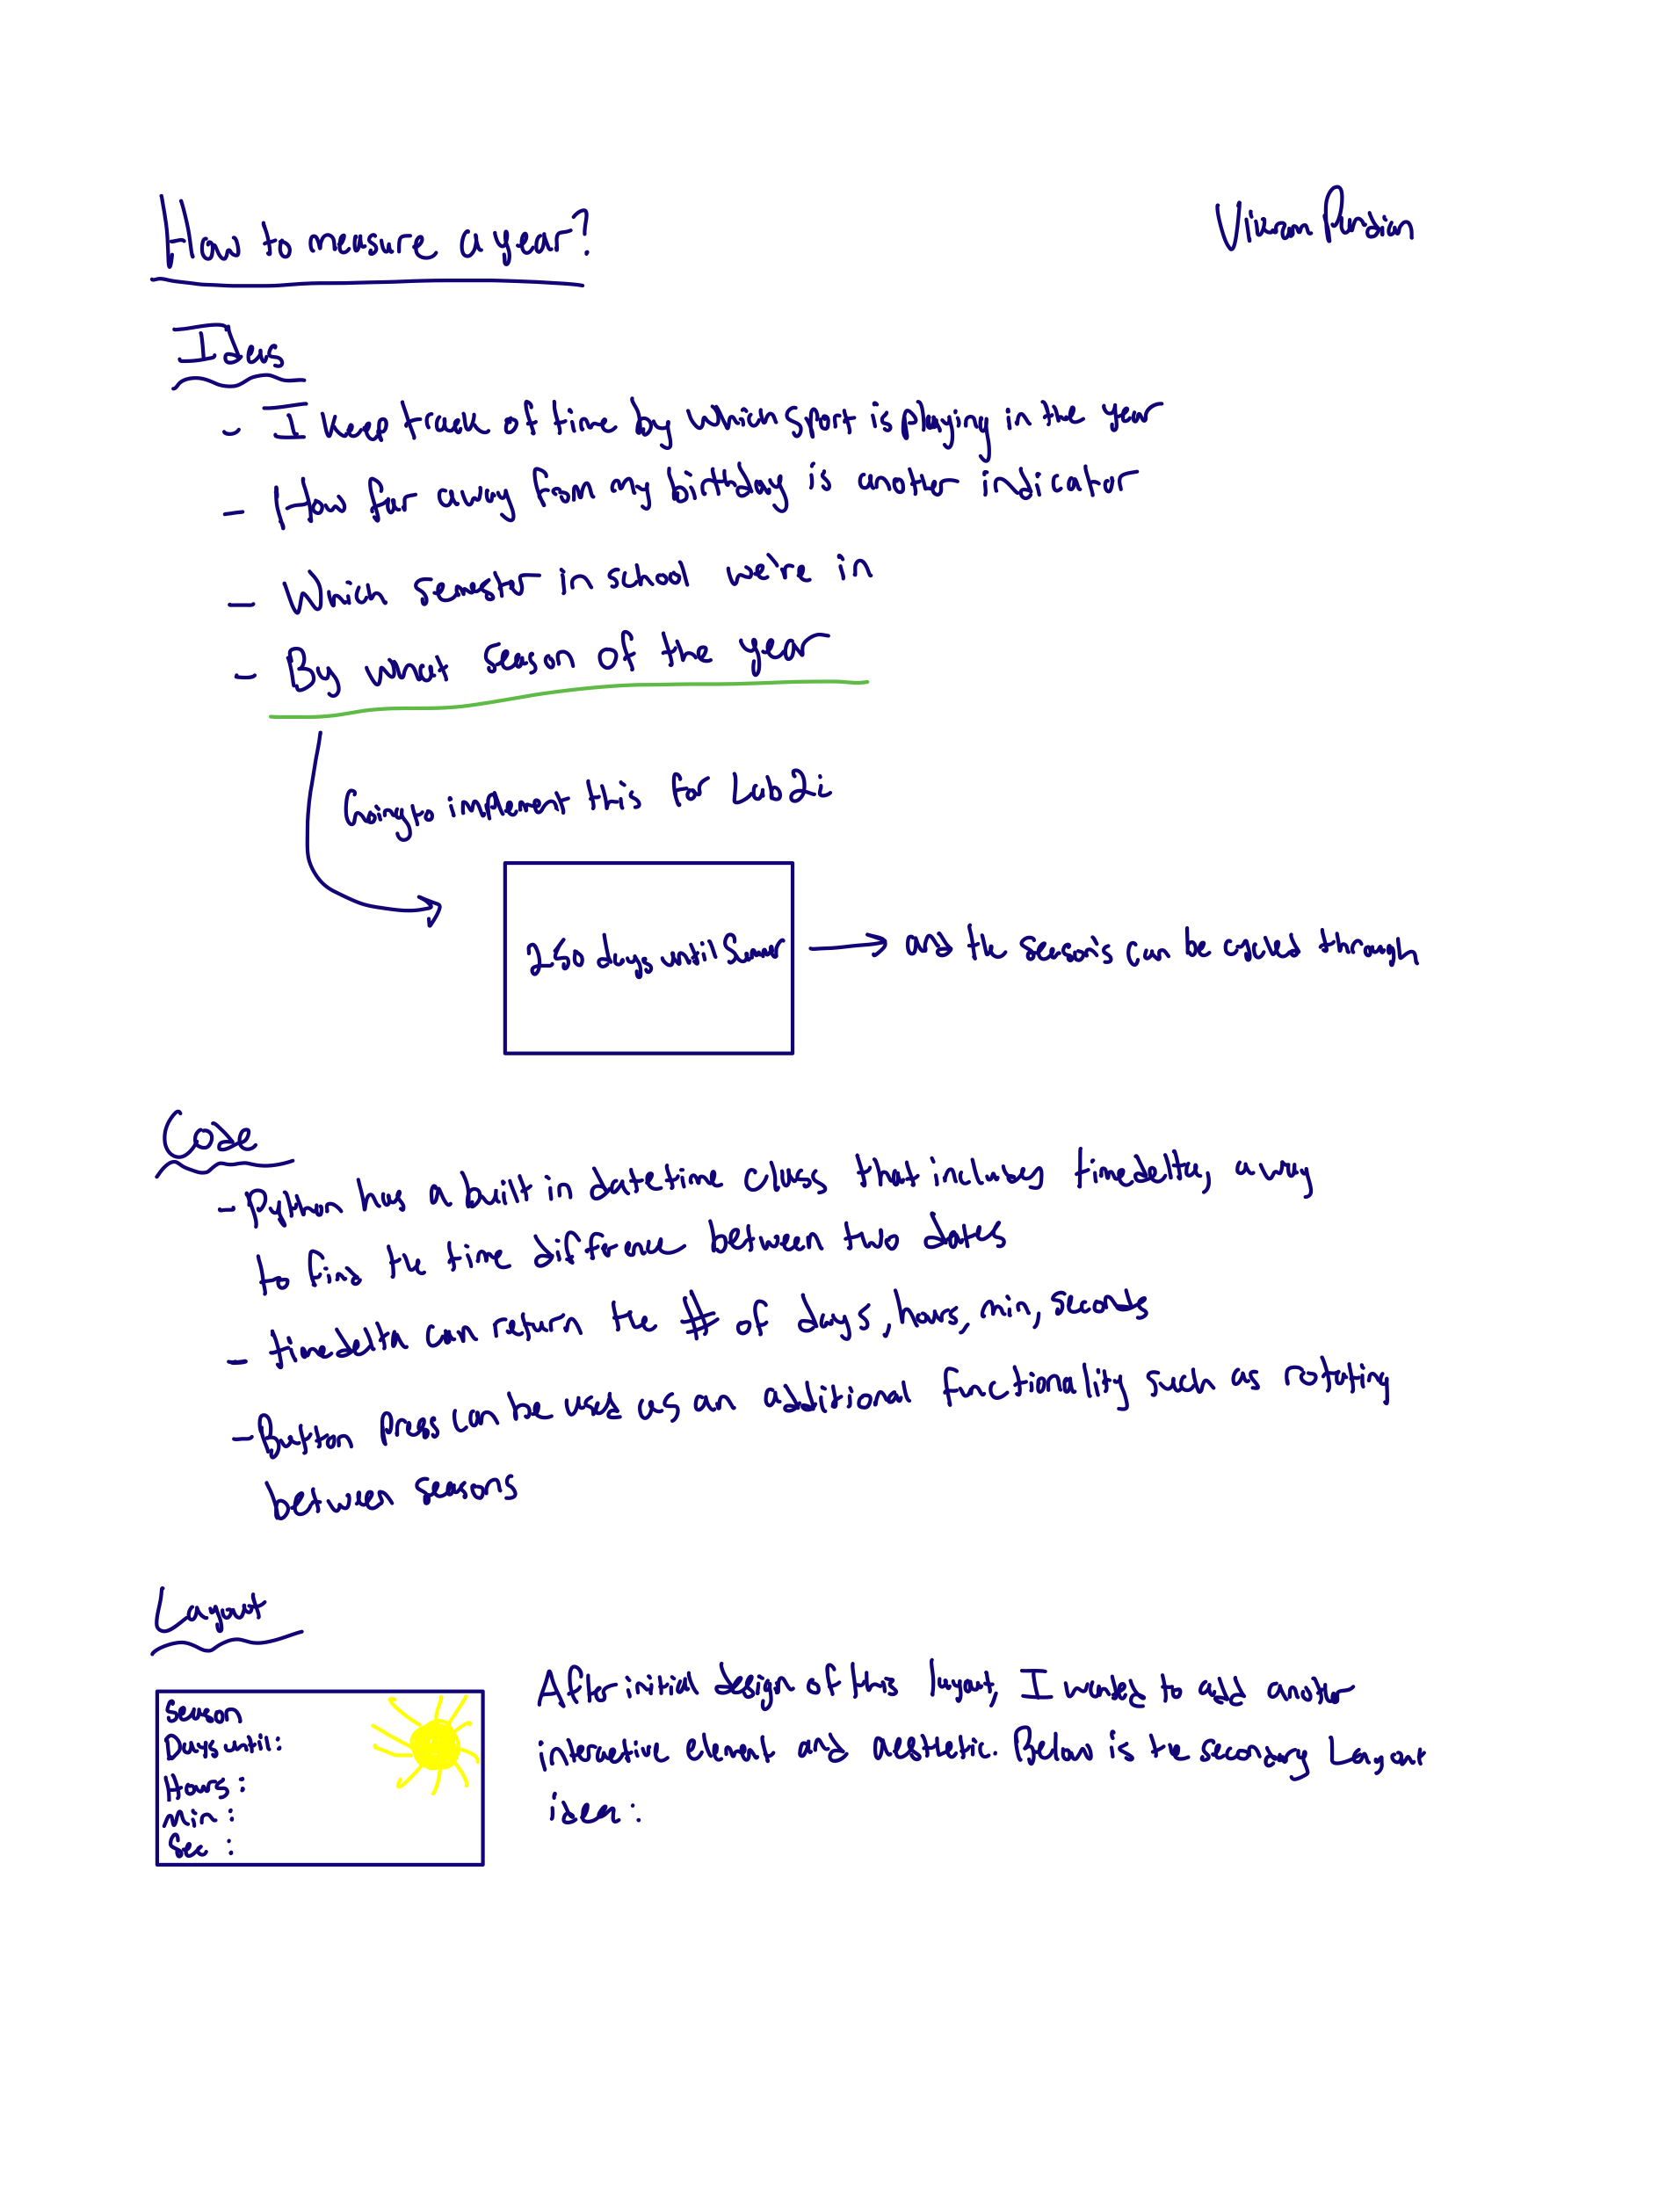 How to measure a year?
Vikram Pandian
Ideas
- I keep track of time by which sport is playing in the year
- How far away from my birthday is another indicator
- Which semester in school we're in
- By what season of the year
Going to implement this for Lab2i
250 days until Summer
and the seasons can be cycled through
Code
- Python has a built in datetime class that includes timedelta, a way
to find the time difference between two dates
- timedelta can return the # of days, hours, min, seconds
- Button press can be used as an additional functionality such as rotating
between seasons
Layout
Season
Days until:
Hours:
Min:
Sec:
After initial design of this layout, I wanted to add another
interactive element and aesthetic. Below is the secondary Layout
idea: